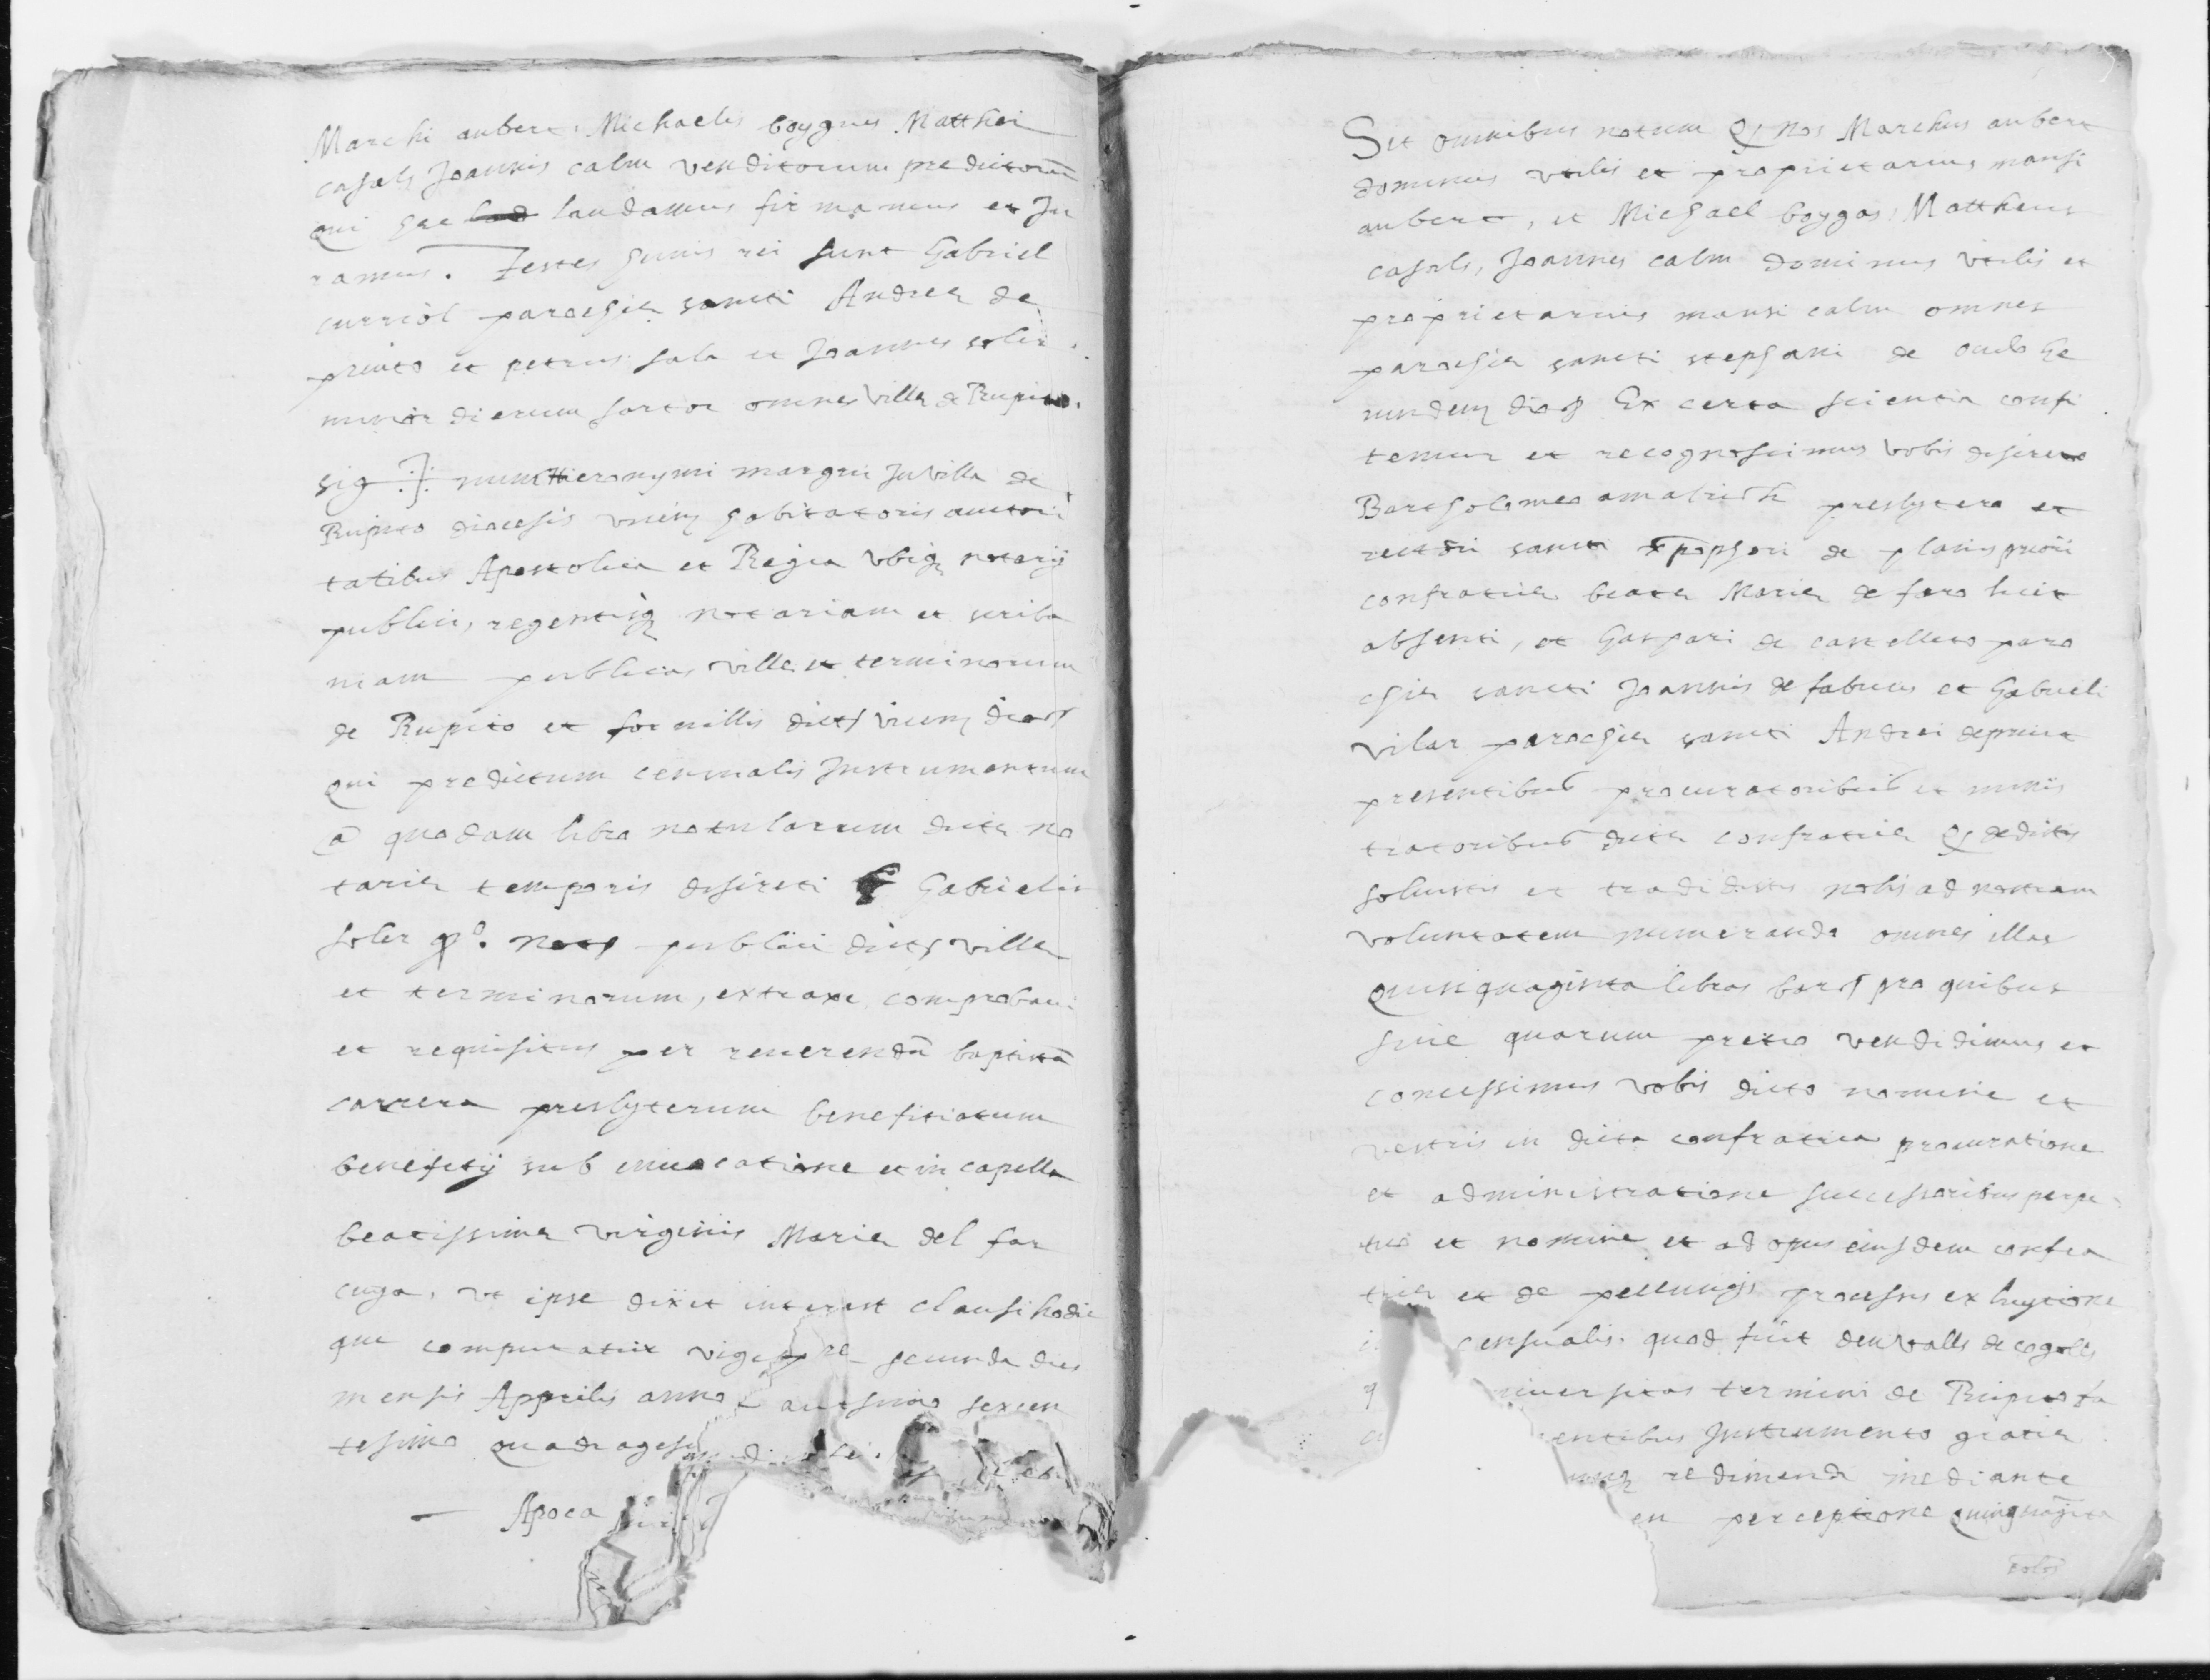 Marchi aubert, Michaelis boygues Matthei
casals Joannis calm venditorum predictorū
qui hec laudamus firmamus et Ju
ramus. Testes huius rei sunt Gabriel
curriòl parochiæ sancti Andreæ de
pruito et petrus sala et Joannes soler
minor dierum sartor omnes villæ de Rupito.
sig num Hieronymi margui Ju villa de
Rupito diocesis vicen habitatoris auctori
tatibus Apostolica et Regia vbiq notarij
publici, regentisq notariam et scriba
niam publicas villæ et terminorum
de Rupito et fornillis dict vicen dioc
qui predictum censualis Instrumentum
â quodam libro notularum dictæ no
tariæ temporis discreti Gabrielis
soler qº. not publici dict villæ
et terminorum, extraxi comprobaui
et requisitus per reuerendū baptistā
carrera presbyterum benefitiatum
benefitij sub inuocatione et in capella
beatissimæ virginis Mariæ del far
cuya, vt ipse dixit interest clausi hodie
que computatur secunda dies
mensis Apprilis anno sexcen
tesimo quadrages
Apoca
Sit omnibus notum Q nos Marchus aubert
dominus vtilis et proprietarius mansi
aubert, et Michael boygas, Mattheus
casals, Joannes calm dominus vtilis et
proprietarius mansi calm omnes
parochiæ sancti stephani de
Ex certa scientia confi
temur et recognoscimus vobis discreto
Bartholomeo amatrich presbytero et
rectori sancti de planis priori
confratriæ beatæ Mariæ de faro licet
absenti, et Gaspari de castelleto paro
chiæ sancti Joannis de fabricis et Gabrieli
vilar parochiæ sancti Andrei de pruit
presentibus procuratoribus et minis
tratoribus dictæ confratriæ Q dedistis
soluistis et tradidistis nobis ad nostram
voluntatem numerando omnes illas
quinquaginta libras bar pro quibus
siue quarum pretio vendidimus et
concessimus vobis dicto nomine et
vestris in dicta confratria procuratione
et administratione successoribus perpe
tuo et nomine et ad opus eiusdem confra
triæ et de pecunijs processis ex luytione
censualis quod fuit den valls de cogolls
niuersitas termini de Rupito
entibus Instrumento gratiæ
redimendi mediante
en perceptione quinquāginta